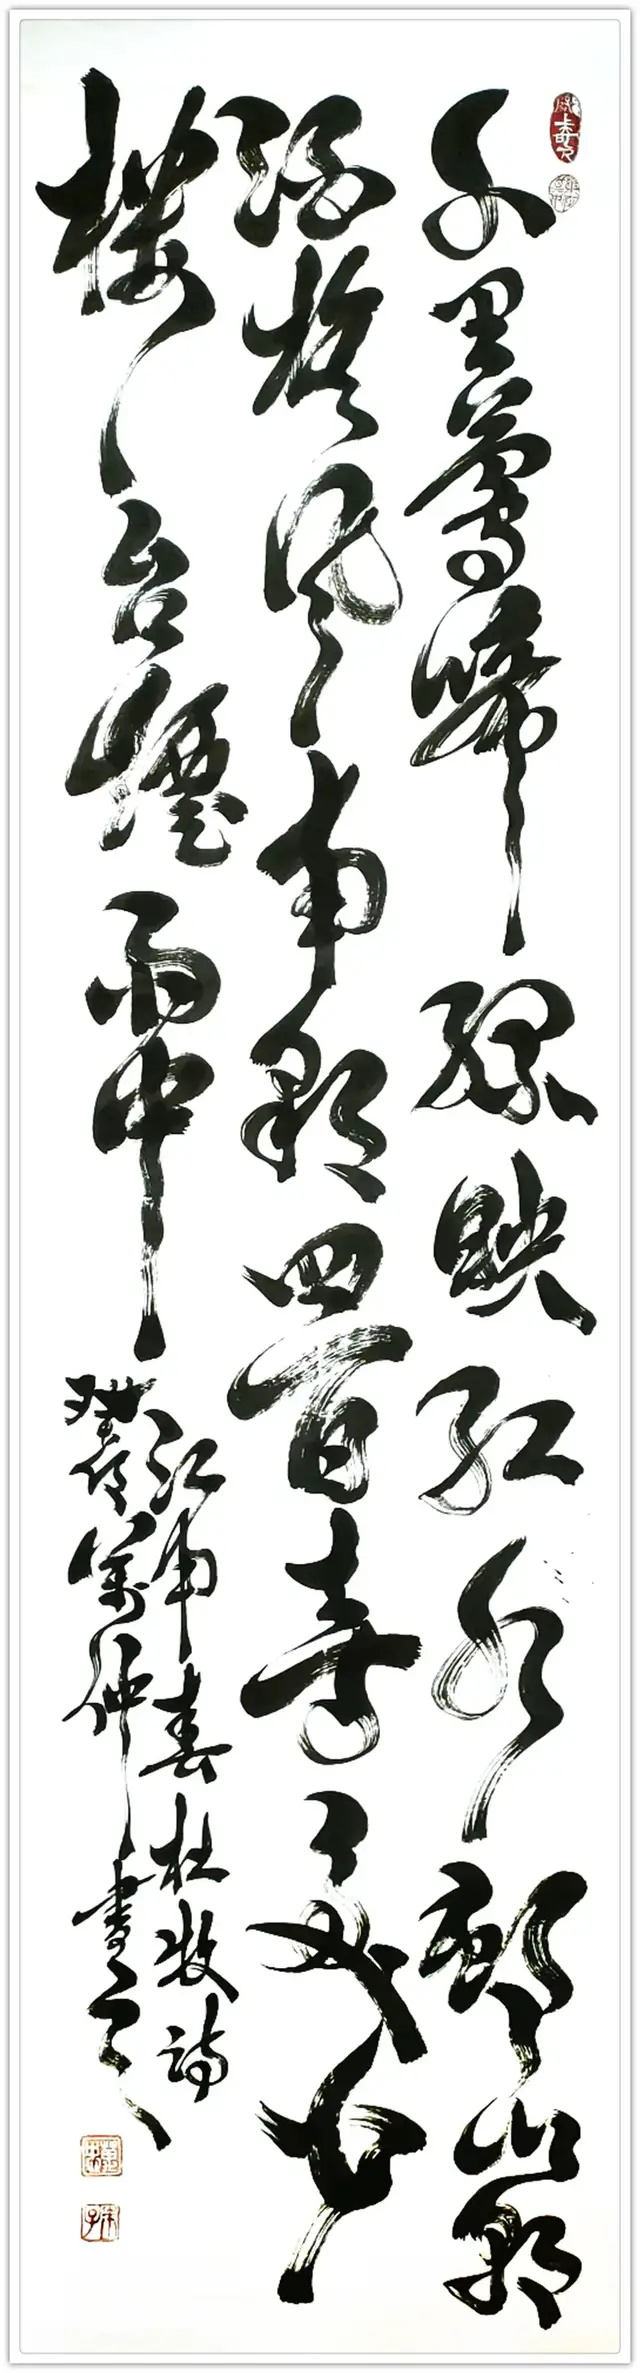 千里鶯啼綠映紅水邨山郭
酒旗風南朝四百寺多少
樓台煙雨中
江南春杜牧詩
仲書之